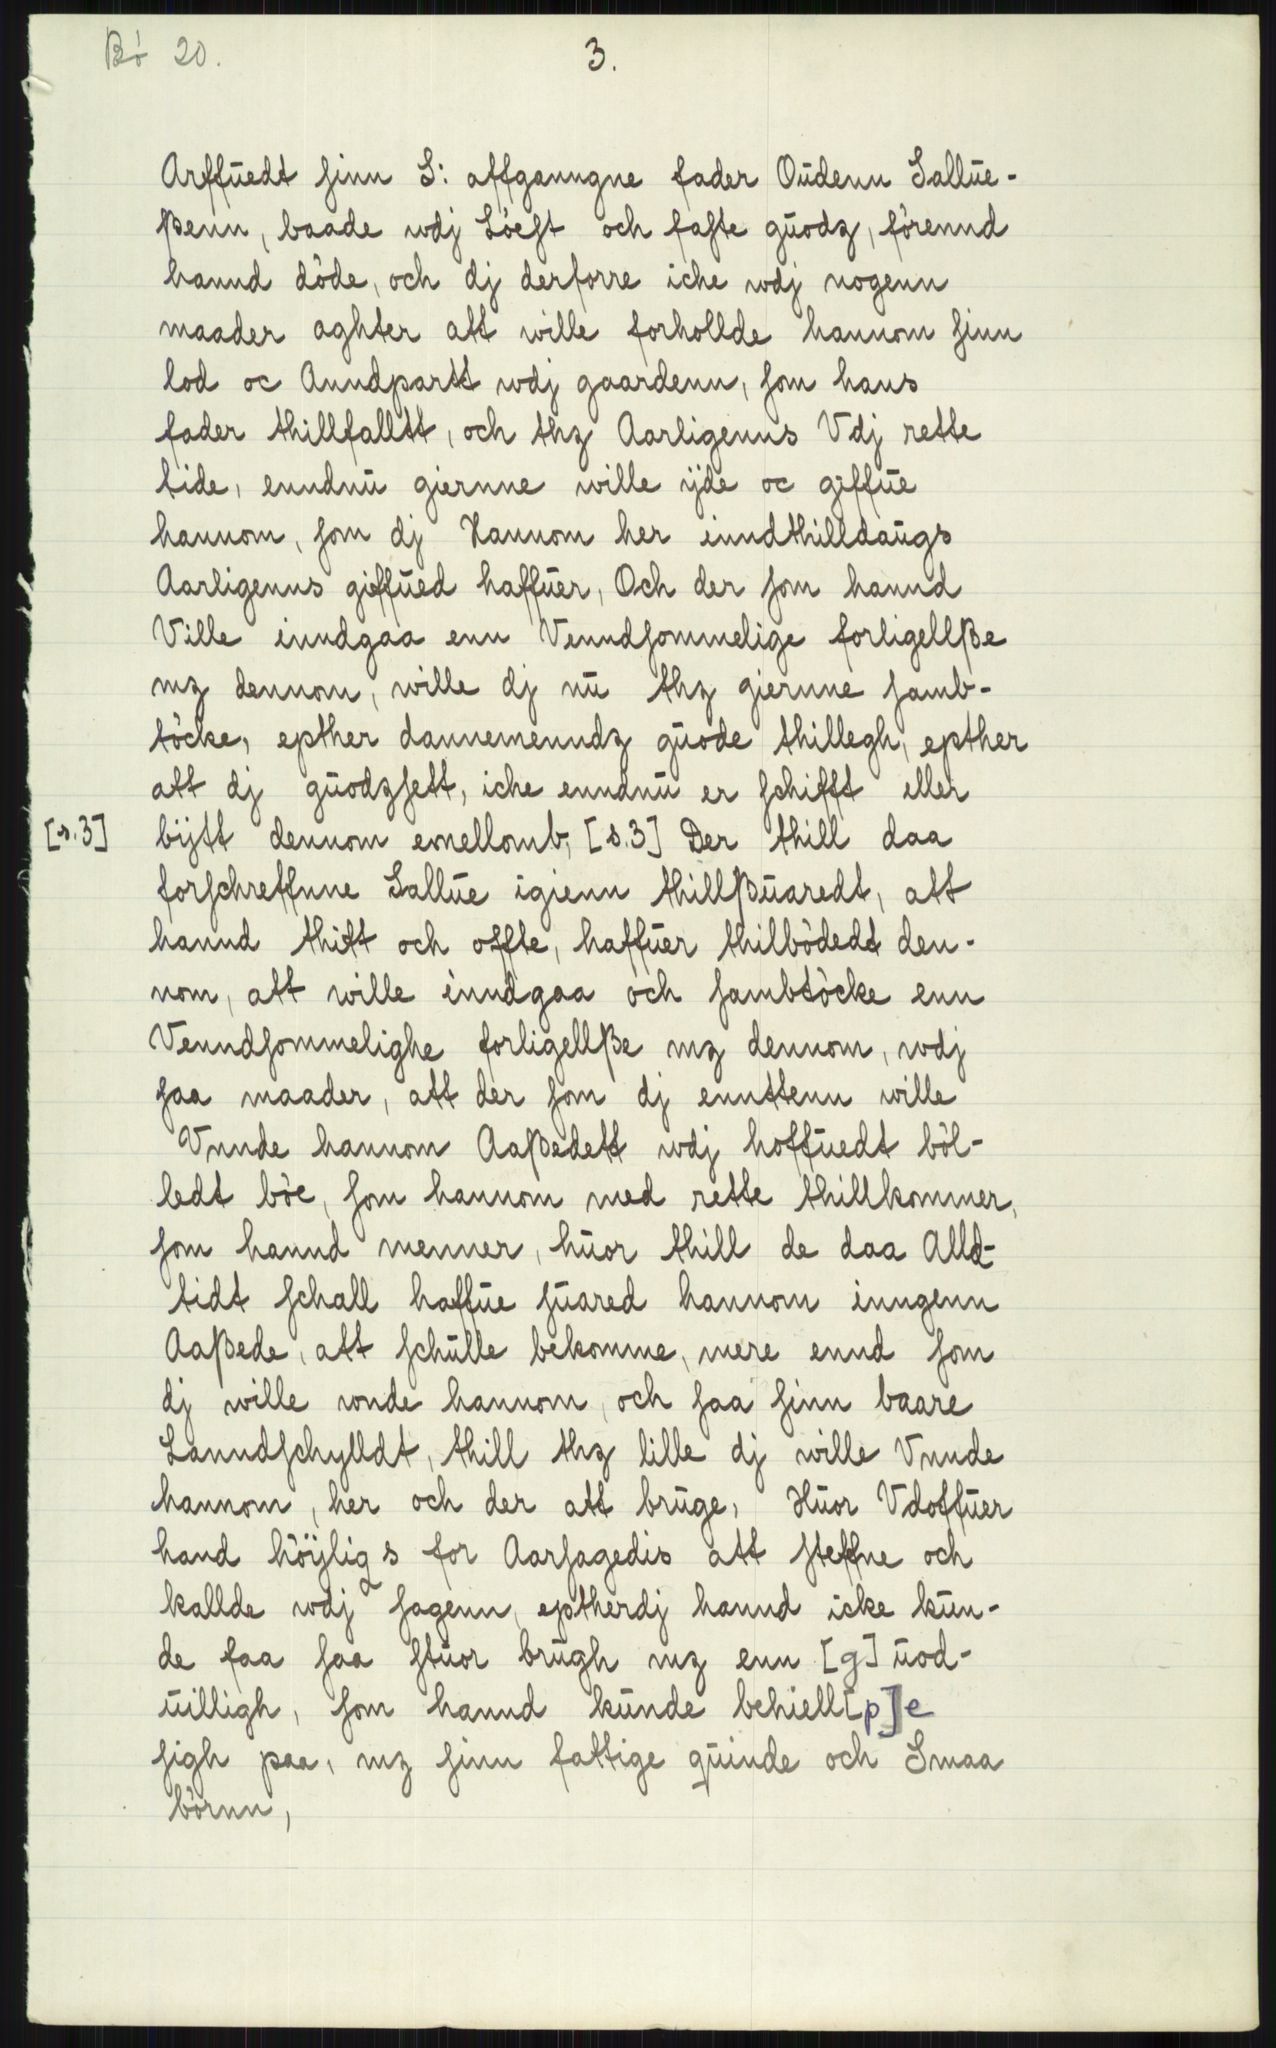 Bö 20.
3.
Arffuedt sinn S: affganngne fader Oudenn Sallue-
ßenn, baade wdj Löest och faste guodz, förennd
hannd döde, och dj derforre iche wdj nogenn
maader aghter att wille forhollde hannom sinn
lod oc Anndpartt wdj gaardenn, som hans
fader thillfalltt, och thz Aarligenns Vdj rette
tide, enndnu giernne wille ÿde oc giffue
hannom, som dj Hannom her inndthilldaugs
Aarligenns giffued haffuer, Och der som hannd
Ville inndgaa enn Venndsommelige forligellße
mz dennom, wille dj nu thz giernne samb-
töcke, epther dannemenndz guode thillegh, epther
att dj guodzsett, iche enndnu er schifft eller
[s.3] bÿtt dennom emellomb, [s.3] Der thill daa
forschreffnne Sallue igienn thillßuaredt, att
hannd thitt och offte, haffuer thilbödedt den-
nom, att wille inndgaa och sambtöcke enn
Venndsommelighe forligellße mz dennom, wdj
saa maader, att der som dj ennttenn wille
Vnnde hannom Aaßedett wdj hoffuedt böl-
ledt böe, som hannom med rette thillkommer,
som hannd menner, huor thill de daa Alld-
tidt schall haffue suared hannom inngenn
Aaßede, att schulle bekomme, mere ennd som
dj wille vnde hannom, och saa sinn baare
Lanndschylldt, thill thz lille dj wille Vnnde
hannom, her och der att bruge, Huor Vdoffuer
hand höÿligs for Aarsagedis att steffne och
kallde wdj sagenn, eptherdj hannd icke kun-
de faa saa stuor brugh mz enn [g]uod-
uilligh, som hannd kunde behiell[p]e
sigh paa, mz sinn fattige quinde och Smaa
börnn,